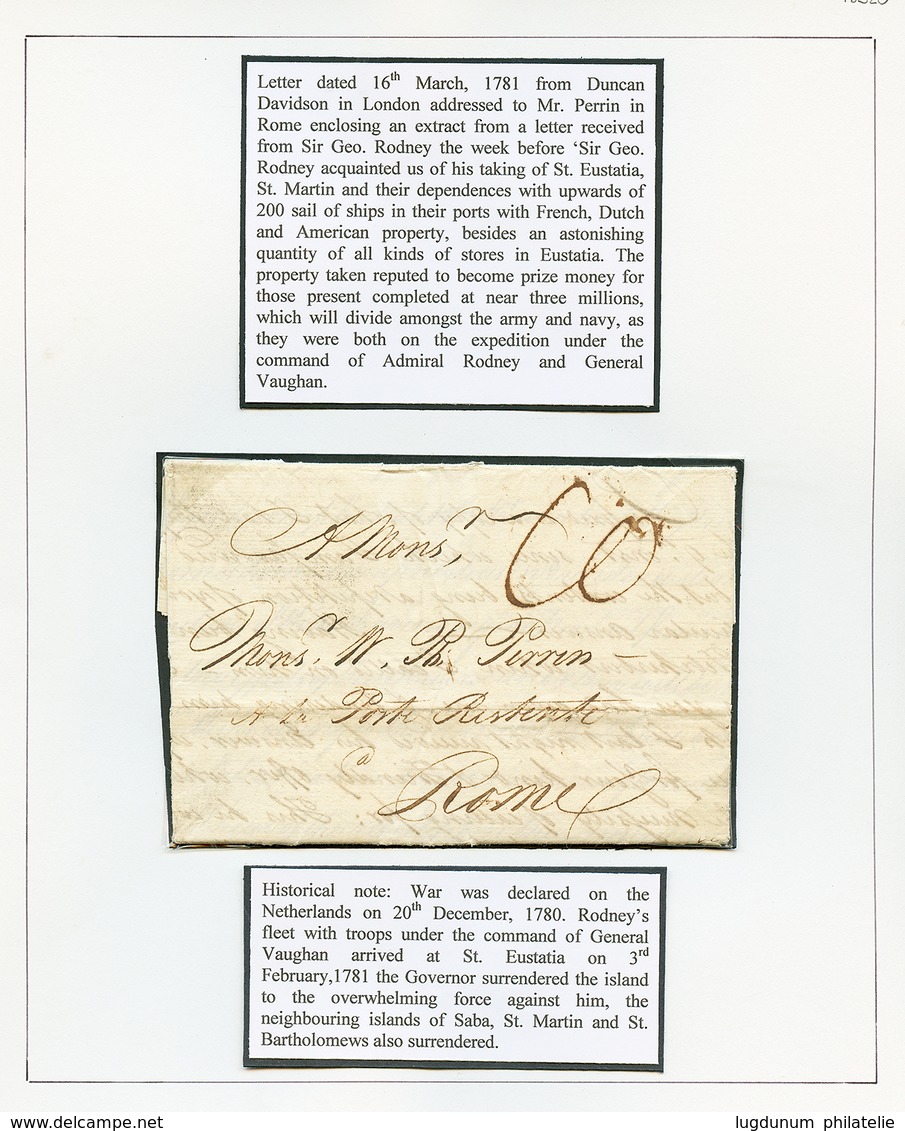 Letter dated 16th March, 1781 from Duncan
Davidson in London addressed to Mr. Perrin in
Rome enclosing an extract from a letter received
from Sir Geo. Rodney the week before ‘Sir Geo.
Rodney acquainted us of his taking of St. Eustatia,
St. Martin and their dependences with upwards of
200 sail of ships in their ports with French, Dutch
and American property, besides an astonishing
quantity of all kinds of stores in Eustatia. The
property taken reputed to become prize money for
those present completed at near three millions,
which will divide amongst the army and navy, as
they were both on the expedition under the
command of Admiral Rodney and General
Vaughan.
A Monsr,
Monsr. W. Ph. Perrin –
A La Poste Restente
a Rome
Historical note: War was declared on the
Netherlands on 20th December, 1780. Rodney’s
fleet with troops under the command of General
Vaughan arrived at St. Eustatia on 3rd
February,1781 the Governor surrendered the island
to the overwhelming force against him, the
neighbouring islands of Saba, St. Martin and St.
Bartholomews also surrendered.
delcampe.net
lugdunum philatelie